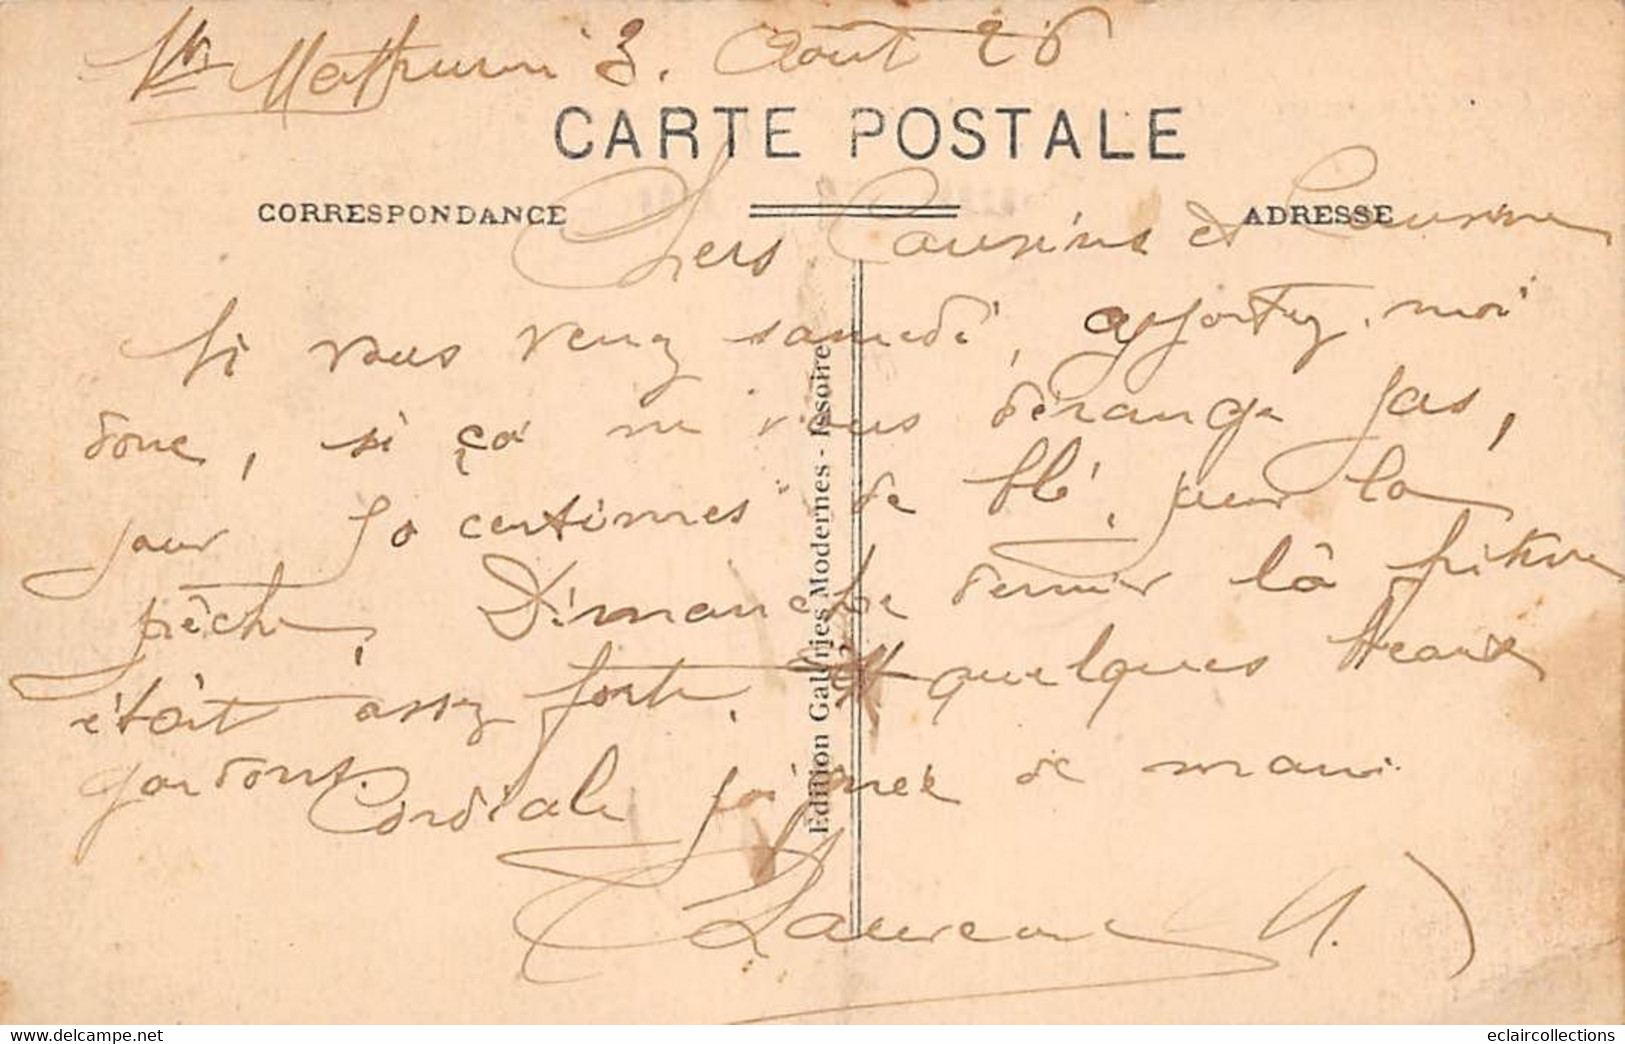 St Mathurin 3. Août 26
CARTE POSTALE
CORRESPONDANCE
ADRESSE
Chers Cousins et Cousine
Si vous venez samedi, apportez-moi
donc, si ça ne vous dérange pas,
pour 50 centimes de blé, pour la
pêche. Dimanche dernier la friture
était assez forte. et quelques beaux
gardons.
Cordiale poignée de main
A.
Edition Galeries Modernes - Issoire
eclaircollections